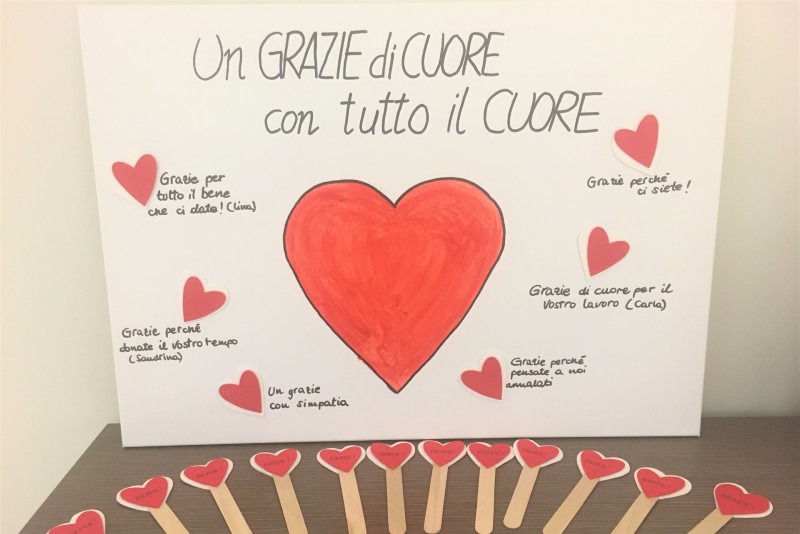 Un GRAZIE di CUORE
con tutto il CUORE
Grazie per
tutto il bene
che ci date! (Lina)
Grazie perché
donate il vostro tempo
(Sandrina)
Un grazie
con simpatia
Grazie perché
ci siete!
Grazie di cuore per il
vostro lavoro (Carla)
Grazie perché
pensate a noi
ammalati
GRAZIE!
GRAZIE!
GRAZIE!
GRAZIE!
GRAZIE!